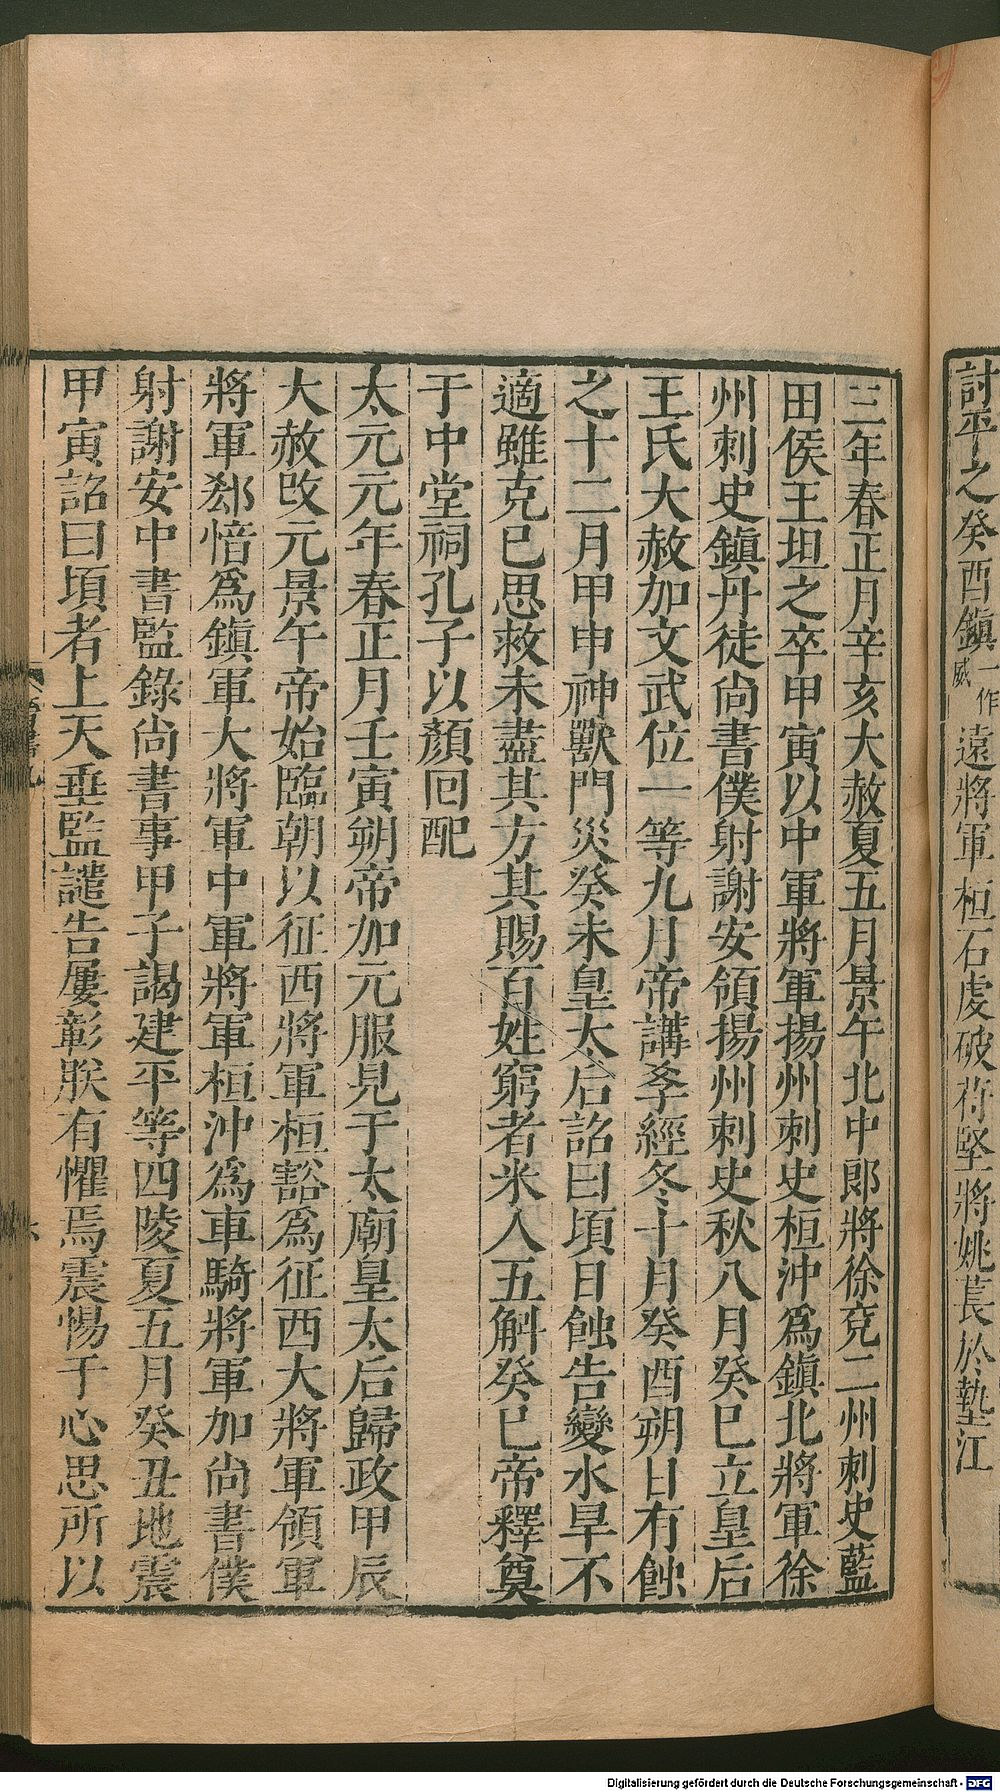 討平之癸酉鎮一作威遠將軍桓石虔破苻堅將姚萇於墊江
三年春正月辛亥大赦夏五月景午北中郎將徐兗二州刺史藍
田侯王坦之卒甲寅以中軍將軍揚州刺史桓沖爲鎮北將軍徐
州刺史鎮丹徒尙書僕射謝安領揚州刺史秋八月癸巳立皇后
王氏大赦加文武位一等九月帝講孝經冬十月癸酉朔日有蝕
之十二月甲申神獸門災癸未皇太后詔曰頃日蝕告變水旱不
適雖克已思救未盡其方其賜百姓窮者米人五斛癸巳帝釋奠
于中堂祠孔子以顏回配
太元元年春正月壬寅朔帝加元服見于太廟皇太后歸政甲辰
大赦改元景午帝始臨朝以征西將軍桓豁爲征西大將軍領軍
將軍郄愔爲鎮軍大將軍中軍將軍桓沖爲車騎將軍加尙書僕
射謝安中書監錄尙書事甲子謁建平等四陵夏五月癸丑地震
甲寅詔曰頃者上天垂監譴告屢彰朕有懼焉震惕于心思所以
Digitalisierung gefördert durch die Deutsche Forschungsgemeinschaft - DFG